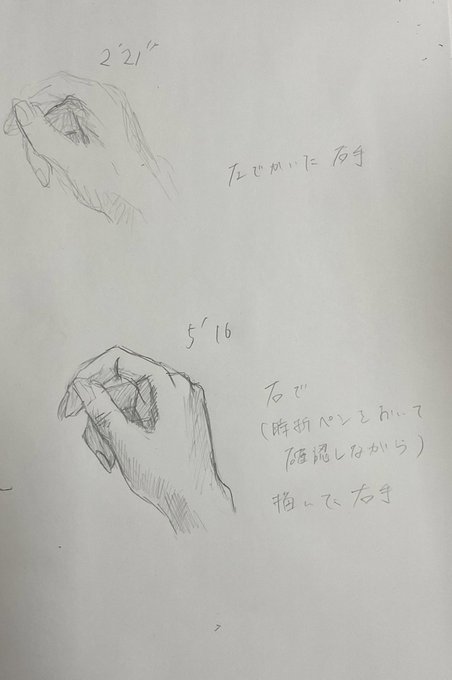 2'21"
左でかいた 右手
5'16
右で
(時折ペンをおいて
確認しながら)
描いた 右手